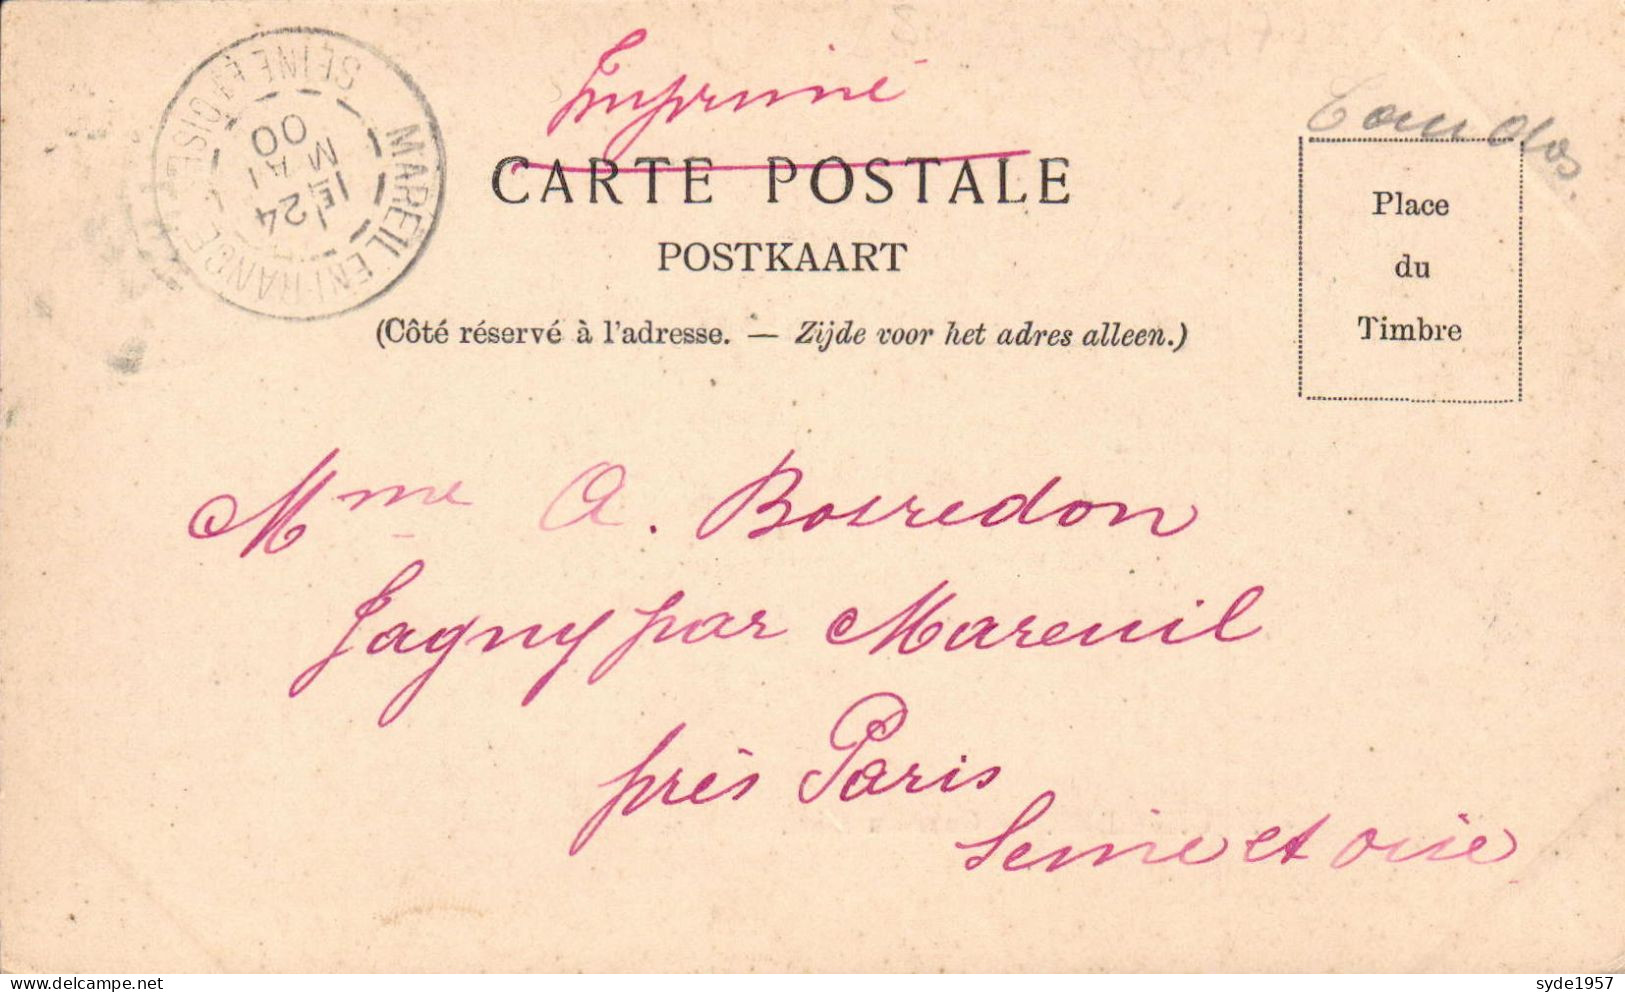 Imprimé
CARTE POSTALE
POSTKAART
(Côté réservé à l'adresse. — Zijde voor het adres alleen.)
MAREIL EN FRANCE
SEINE ET OISE
1E
24
MAI
00
dos.
Place
du
Timbre
Mme A. Bosredon
Jagny par Mareuil
près Paris
Seine et oise
syde1957